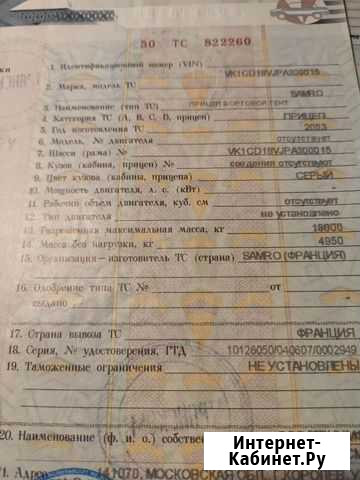 50 ТС 822260
1. Идентификационный номер (VIN) VK1CD18VJPA300015
2. Марка, модель ТС SAMRO
3. Наименование (тип ТС) ПРИЦЕП БОРТОВОЙ ТЕНТ
4. Категория ТС (А, В, С, D, прицеп) ПРИЦЕП
5. Год изготовления ТС 2003
6. Модель, № двигателя отсутствует
7. Шасси (рама) № VK1CD18VJPA300015
8. Кузов (кабина, прицеп) № сведения отсутствуют
9. Цвет кузова (кабины, прицепа) СЕРЫЙ
10. Мощность двигателя, л. с. (кВт) -
11. Рабочий объем двигателя, куб. см отсутствует
12. Тип двигателя не установлено
13. Разрешенная максимальная масса, кг 18000
14. Масса без нагрузки, кг 4950
15. Организация – изготовитель ТС (страна) SAMRO (ФРАНЦИЯ)
16. Одобрение типа ТС № от -
выдано -
17. Страна вывоза ТС ФРАНЦИЯ
18. Серия, № удостоверения, ГТД 10126050/040607/0002949
19. Таможенные ограничения НЕ УСТАНОВЛЕНЫ
20. Наименование (ф. и. о.)
21. Адрес МОСКОВСКАЯ ОБЛ
Интернет-
Кабинет.Ру